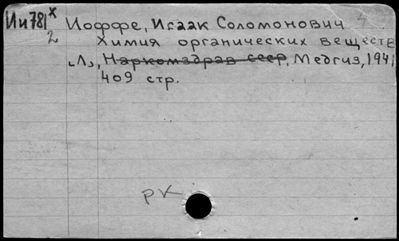 Ии781х Иоффе, Исаак Соломонович
2 Химия органических веществ
„Л", Наркомздрав ссср, Медгиз, 1941
409 стр.
рк